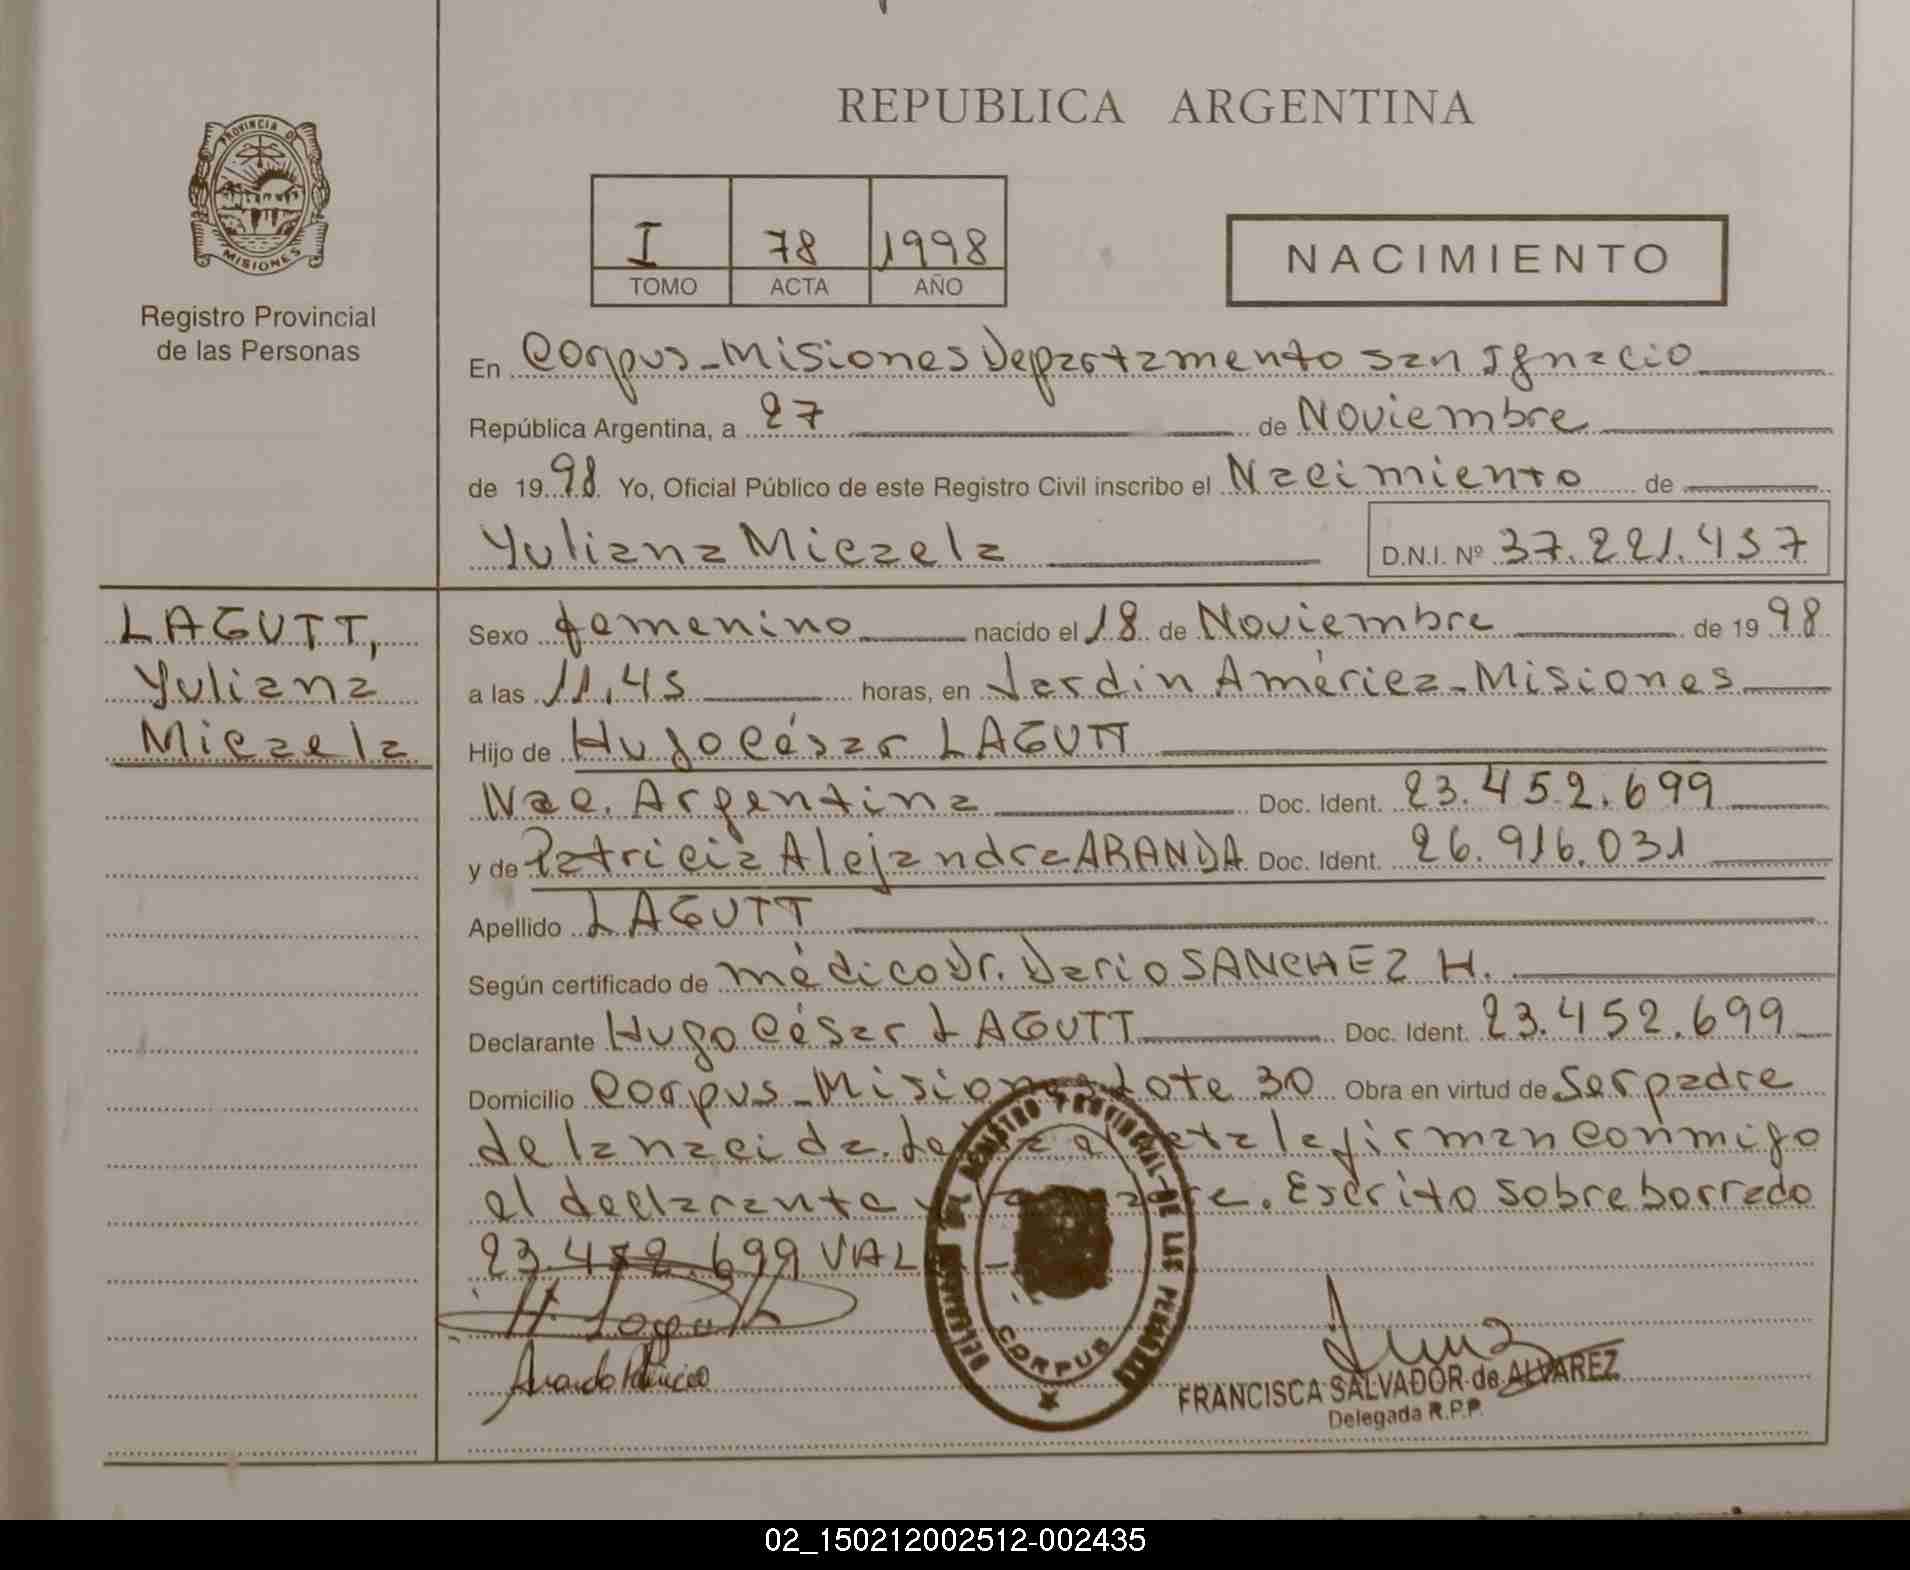 REPUBLICA ARGENTINA
PROVINCIA DE
MISIONES
Registro Provincial
de las Personas
I 78 1998
TOMO ACTA AÑO
NACIMIENTO
En Corpus - Misiones Departamento San Ignacio
República Argentina, a 27 de Noviembre
de 1998 Yo, Oficial Público de este Registro Civil inscribo el Nacimiento de
Yuliana Micaela D.N.I. Nº 37.221.457
LAGUTT,
Yuliana
Micaela
Sexo femenino nacido el 18 de Noviembre de 1998
a las 11,45 horas, en Jardin América - Misiones
Hijo de Hugo César LAGUTT
Nac. Argentina Doc. Ident. 23.452.699
y de Patricia Alejandra ARANDA Doc. Ident. 26.916.031
Apellido LAGUTT
Según certificado de médico Dr. Dario SANCHEZ H.
Declarante Hugo César LAGUTT Doc. Ident. 23.452.699
Domicilio Corpus - Misiones Lote 30 Obra en virtud de Ser padre
de la nacida. Leida el acta la firman conmigo
el declarante y la madre. Escrito sobre borrado
23.452.699 VALE
H. Lagutt
Aranda Patricia
REGISTRO PROVINCIAL DE LAS PERSONAS
CORPUS
FRANCISCA SALVADOR de ALVAREZ
Delegada R.P.P.
02_150212002512-002435